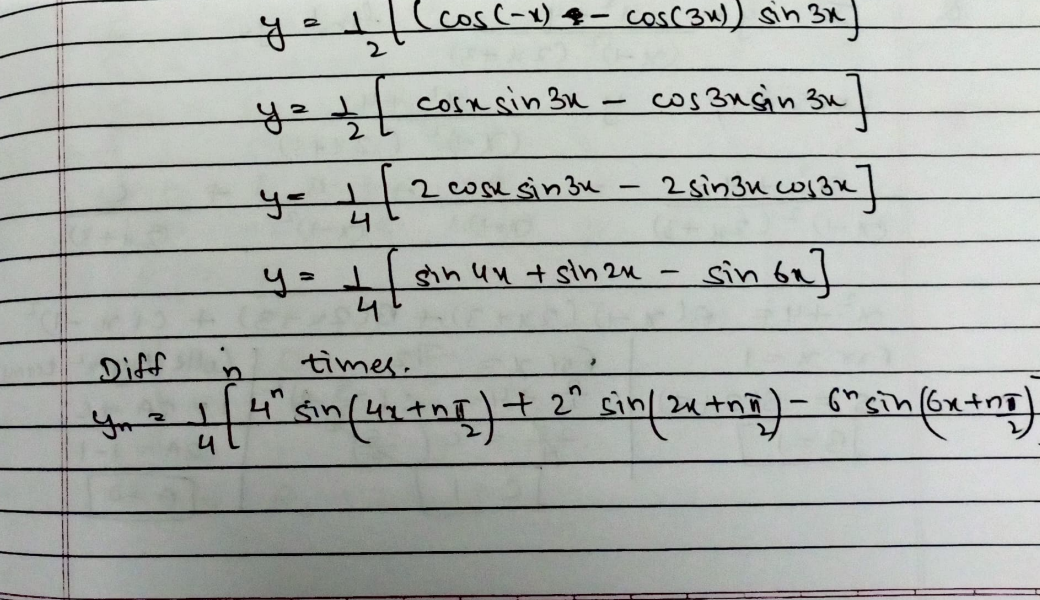 y = 1/2 [(cos(-x) - cos(3x)) sin 3x]
y = 1/2 [ cosx sin 3x - cos 3x sin 3x ]
y = 1/4 [ 2 cosx sin3x - 2 sin3x cos3x ]
y = 1/4 [ sin 4x + sin 2x - sin 6x ]
Diff n times.
yₙ = 1/4 [ 4ⁿ sin(4x + nπ/2) + 2ⁿ sin(2x + nπ/2) - 6ⁿ sin(6x + nπ/2)]